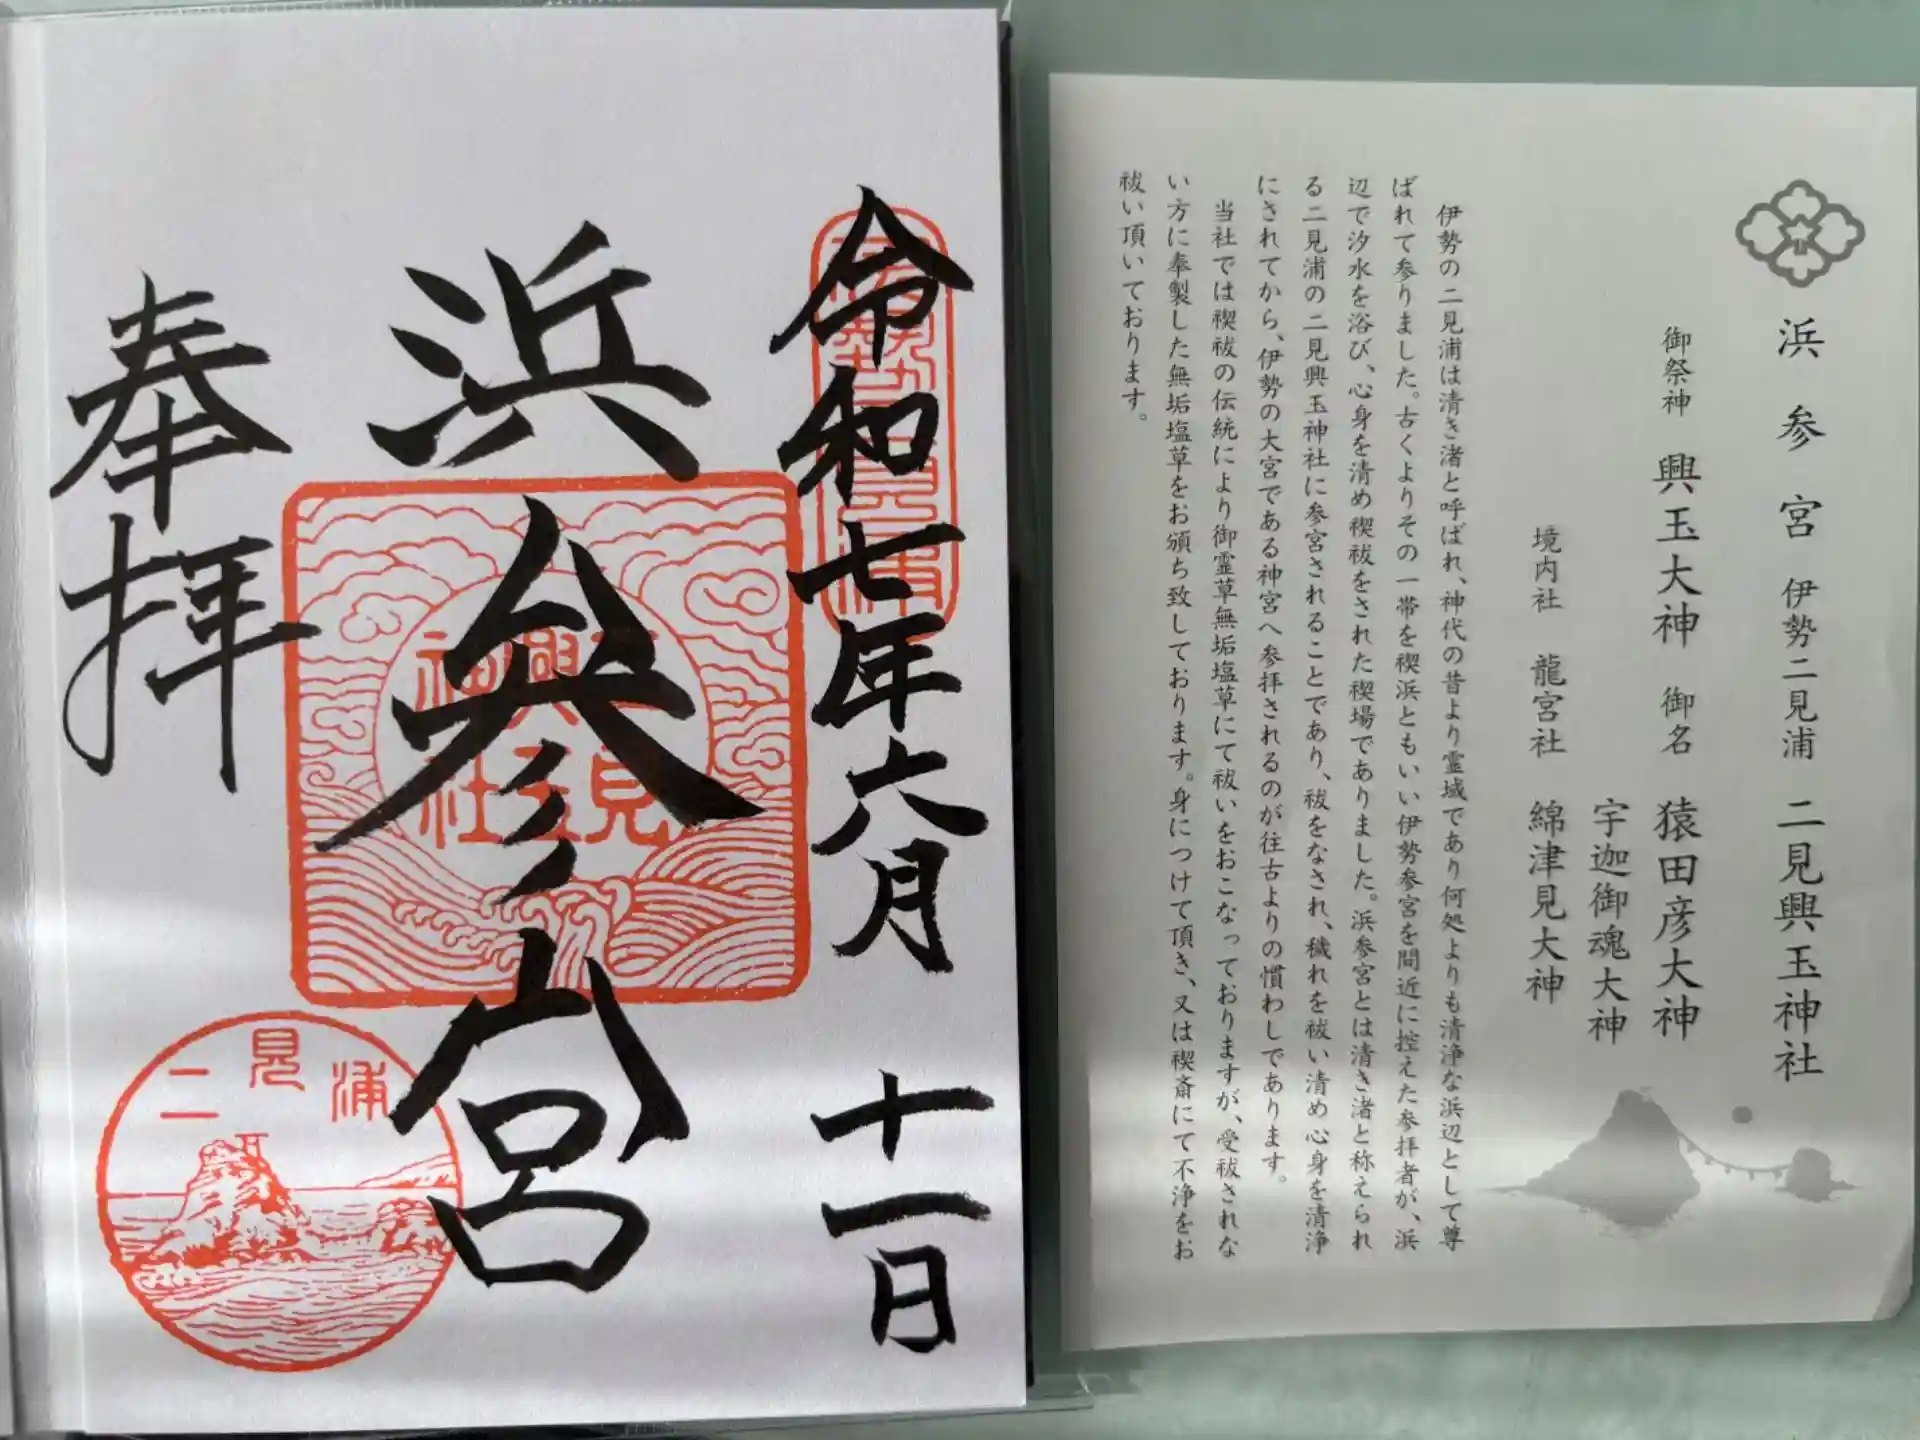 浜参宮 伊勢二見浦 二見興玉神社
御祭神 興玉大神 御名 猿田彦大神
宇迦御魂大神
境内社 龍宮社 綿津見大神
伊勢の二見浦は清き渚と呼ばれ、神代の昔より霊域であり何処よりも清浄な浜辺として尊
ばれて参りました。古くよりその一帯を禊浜ともいい伊勢参宮を間近に控えた参拝者が、浜
辺で汐水を浴び、心身を清め禊祓をされた禊場でありました。浜参宮とは清き渚と称えられ
る二見浦の二見興玉神社に参宮されることであり、祓をなされ、穢れを祓い清め心身を清浄
にされてから、伊勢の大宮である神宮へ参拝されるのが往古よりの慣わしであります。
当社では禊祓の伝統により御霊草無垢塩草にて祓いをおこなっておりますが、受祓されな
い方に奉製した無垢塩草をお頒ち致しております。身につけて頂き、又は禊斎にて不浄をお
祓い頂いております。
令和七年六月十一日
浜参宮
奉拝
二見興玉神社
二見浦